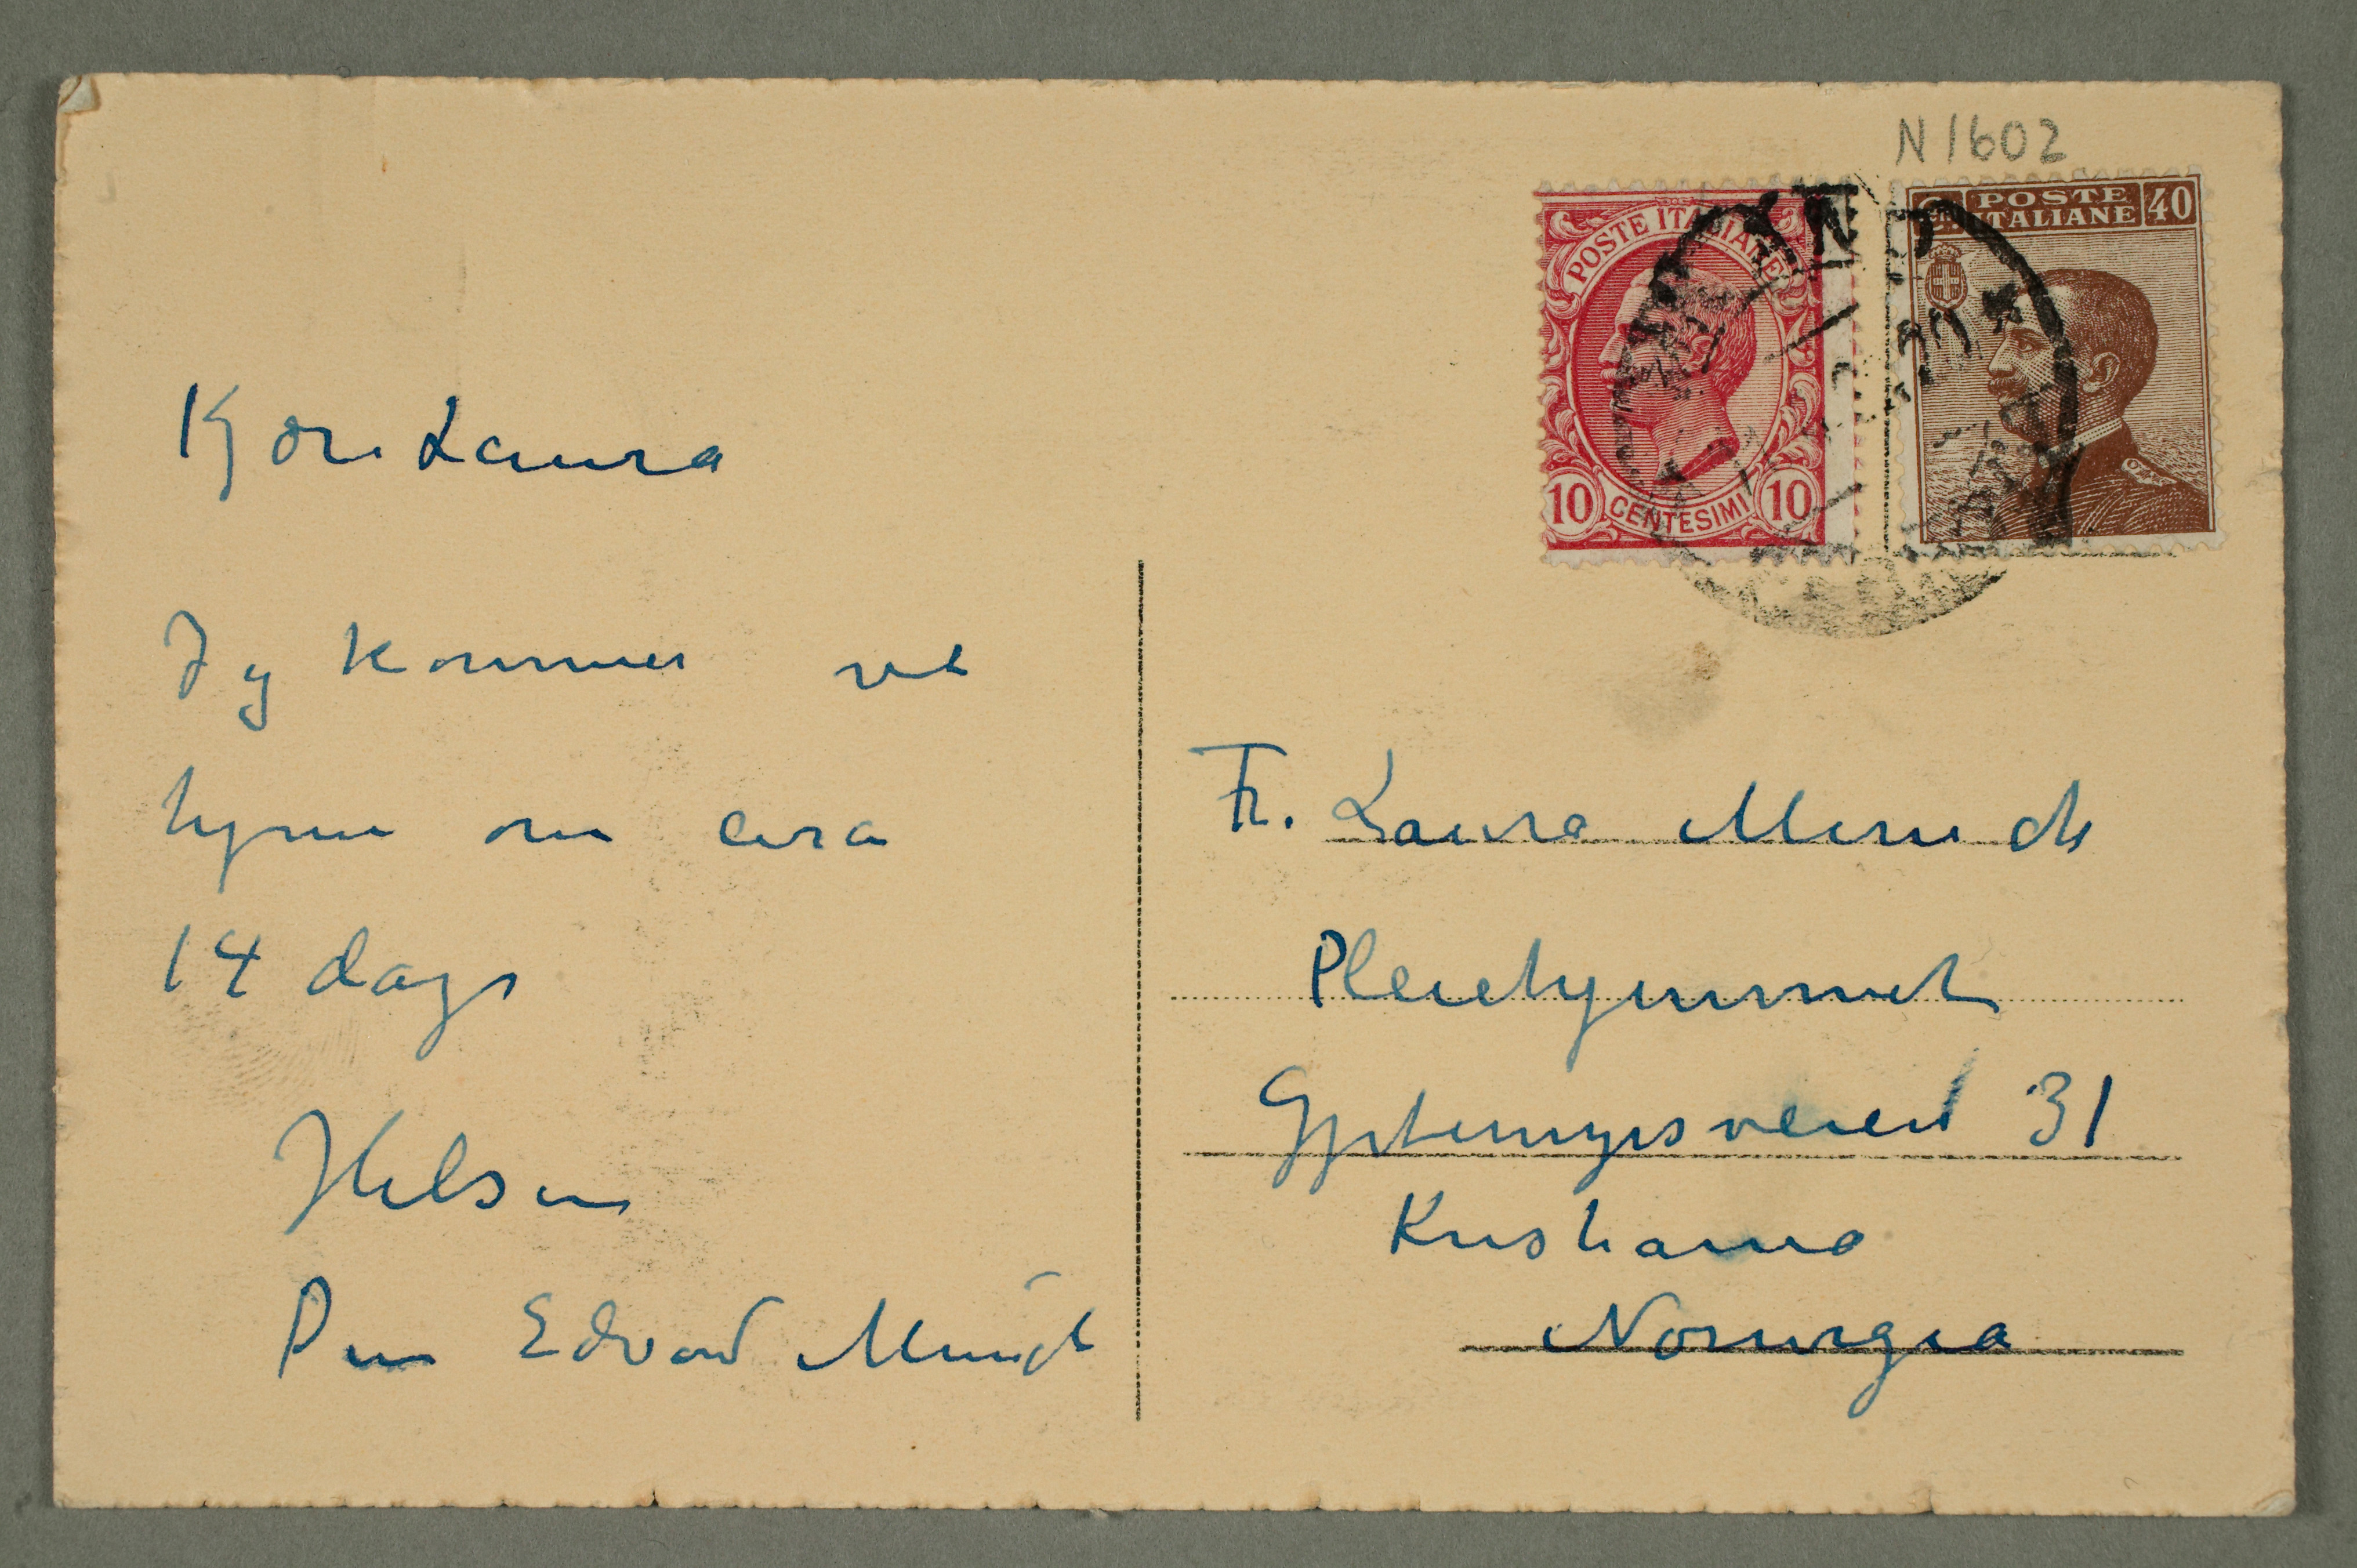 N 1602
POSTE ITALIANE
10 CENTESIMI 10
POSTE 40
ITALIANE
Kjære Laura
Jeg kommer vel
hjem om circa
14 dage
Hilsen
Din Edvard Munch
Fr. Laura Munch
Pleiehjemmet
Gjetemyrsveien 31
Kristiania
Norvegia